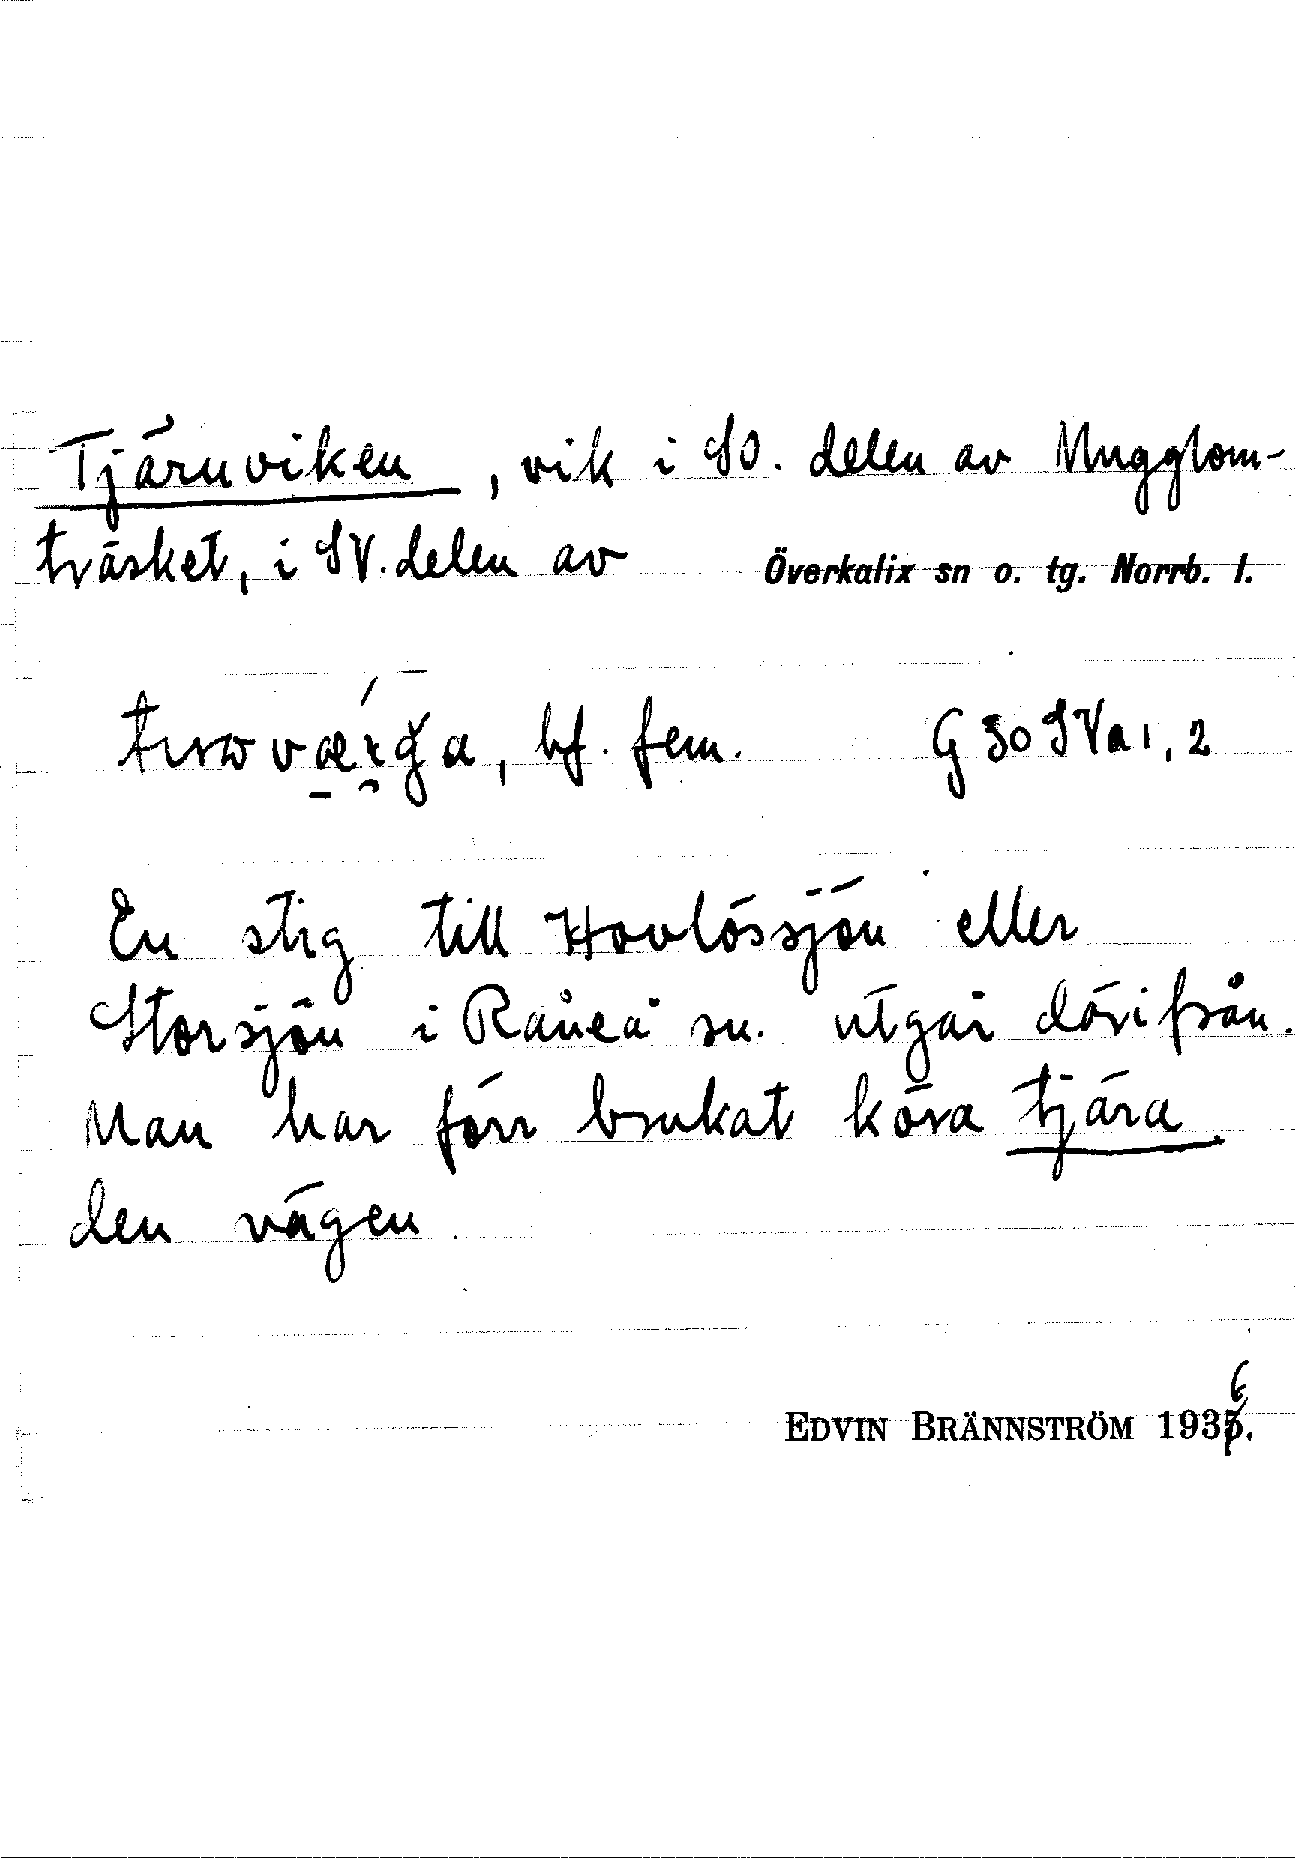 Tjäruviken, vik i SO. delen av Mugglom-
träsket, i SV. delen av Överkalix sn o. tg. Norrb. l.
bf. fem. G 30 SVa 1, 2
En stig till Hovlössjön eller
Storsjön i Råneå sn. utgår därifrån.
Man har förr brukat köra tjära
den vägen.
EDVIN BRÄNNSTRÖM 1936.